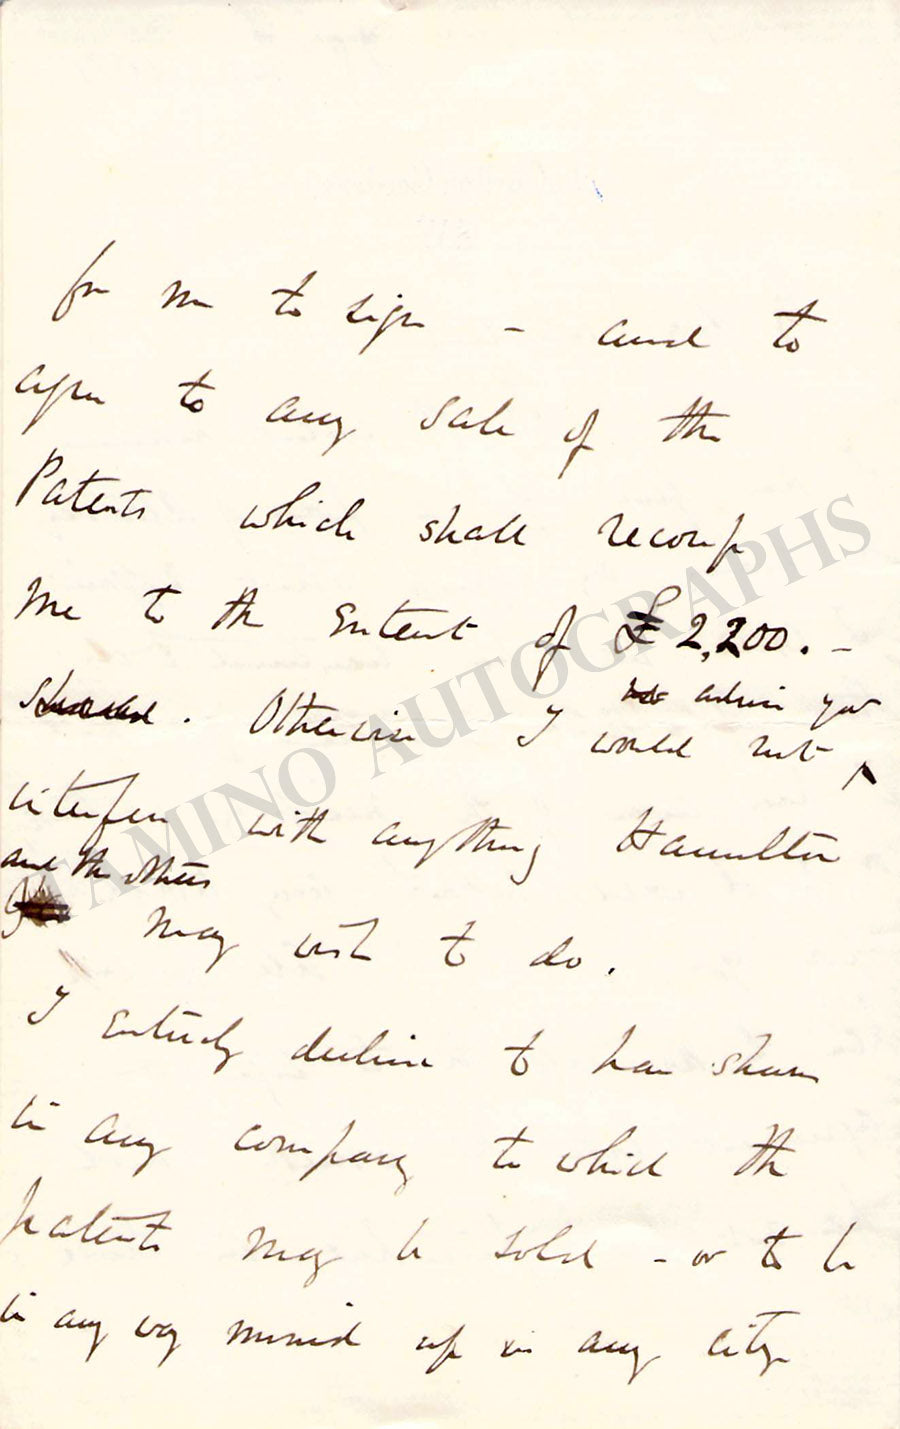 for me to sign – and to
agree to any sale of the
Patents which shall recoup
me to the extent of £2,200. –
Otherwise I would not advise you
interfere with anything Hamilton
and the others
may wish to do.
I entirely decline to have shares
in any company to which the
patents may be sold – or to be
in any way mixed up in any city
TAMINO AUTOGRAPHS